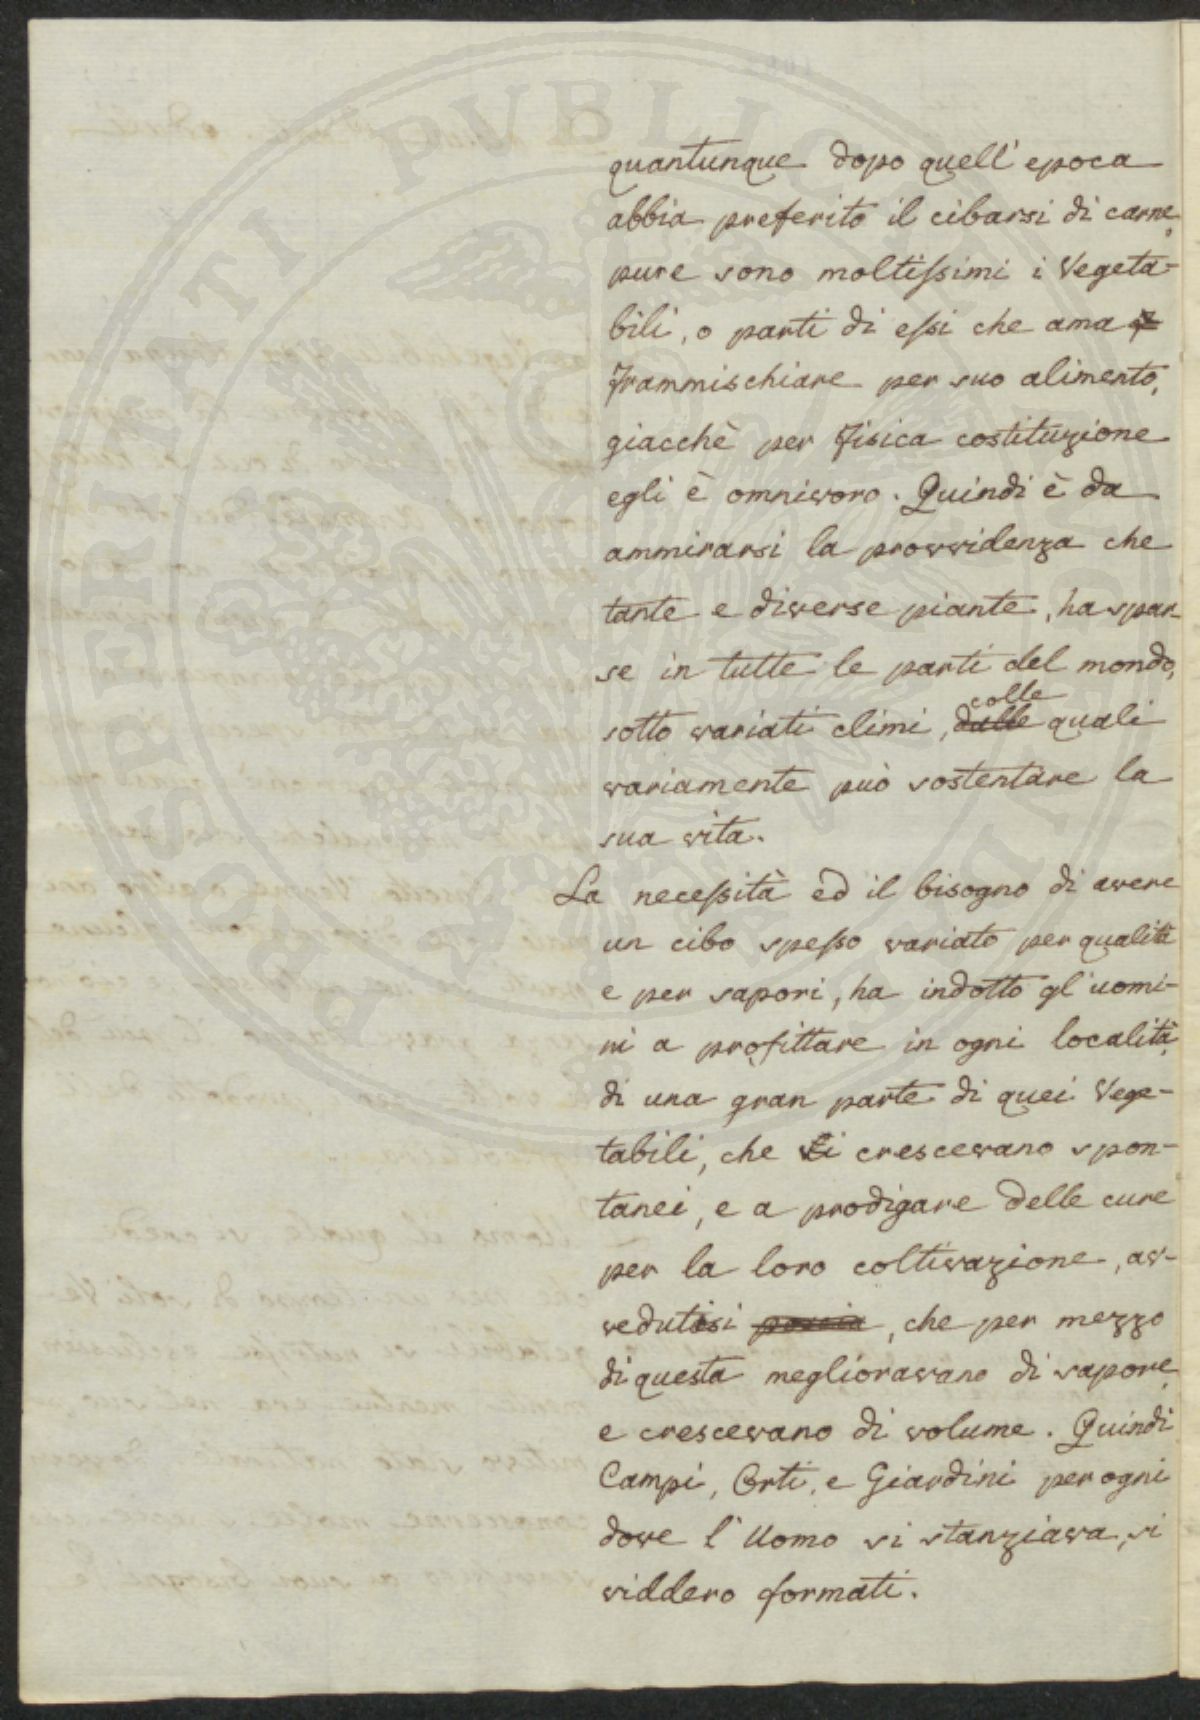 quantunque dopo quell' epoca
abbia preferito il cibarsi di carne,
pure sono moltissimi i Vegeta-
bili, o parti di essi che ama
frammischiare per suo alimento,
giacchè per fisica costituzione
egli è omnivoro. Quindi è da
ammirarsi la provvidenza che
tante e diverse piante, ha spar-
se in tutte le parti del mondo,
sotto variati climi, dalle colle quali
variamente può sostentare la
sua vita.
La necessità ed il bisogno di avere
un cibo spesso variato per qualità
e per sapori, ha indotto gl' uomi-
ni a profittare in ogni località,
di una gran parte di quei Vege-
tabili, che vi crescevano spon-
tanei, e a prodigare delle cure
per la loro coltivazione, av-
vedutisi poscia, che per mezzo
di questa meglioravano di sapore,
e crescevano di volume. Quindi
Campi, Orti, e Giardini per ogni
dove l' Uomo si stanziava, si
viddero formati.
PROSPERITATI PUBLICAE